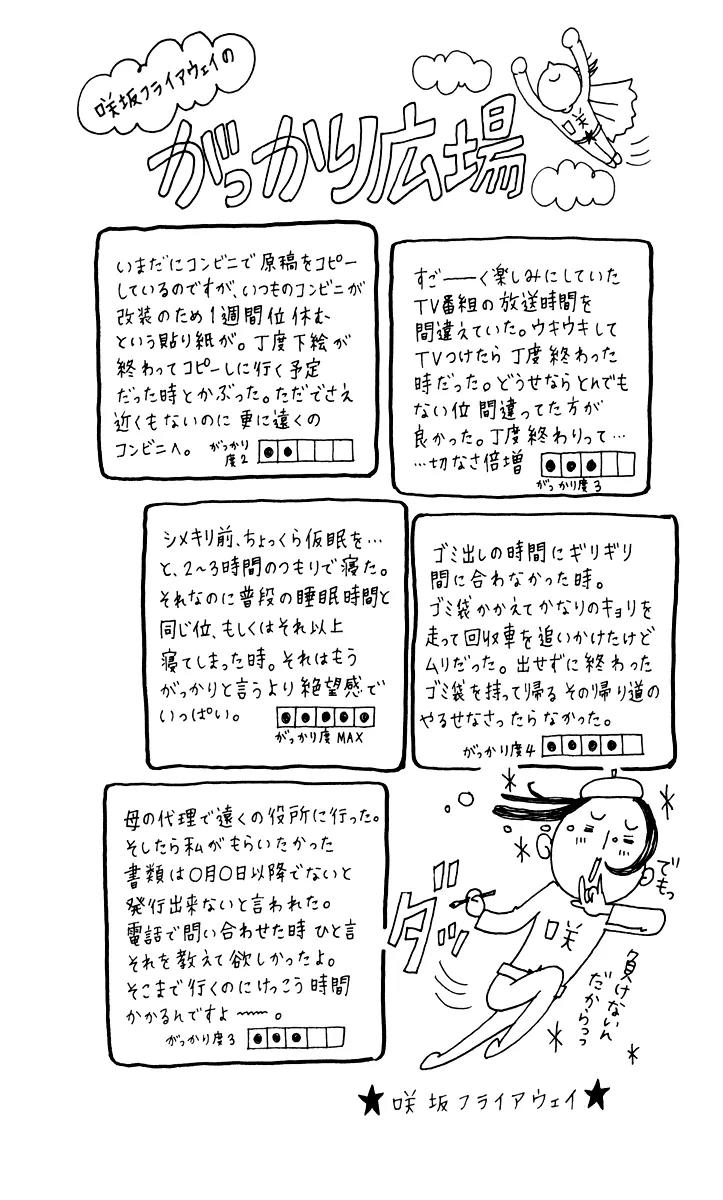 咲坂フライアウェイの
がっかり広場
咲
いまだにコンビニで原稿をコピー
しているのですが、いつものコンビニが
改装のため1週間位休む
という貼り紙が。丁度下絵が
終わってコピーしに行く予定
だった時とかぶった。ただでさえ
近くもないのに更に遠くの
コンビニへ。
がっかり
度2
すご――く楽しみにしていた
TV番組の放送時間を
間違えていた。ウキウキして
TVつけたら丁度終わった
時だった。どうせならとんでも
ない位間違ってた方が
良かった。丁度終わりって…
…切なさ倍増
がっかり度3
シメキリ前、ちょっくら仮眠を…
と、2~3時間のつもりで寝た。
それなのに普段の睡眠時間と
同じ位、もしくはそれ以上
寝てしまった時。それはもう
がっかりと言うより絶望感で
いっぱい。
がっかり度MAX
ゴミ出しの時間にギリギリ
間に合わなかった時。
ゴミ袋かかえてかなりのキョリを
走って回収車を追いかけたけど
ムリだった。出せずに終わった
ゴミ袋を持って帰るその帰り道の
やるせなさったらなかった。
がっかり度4
母の代理で遠くの役所に行った。
そしたら私がもらいたかった
書類は〇月〇日以降でないと
発行出来ないと言われた。
電話で問い合わせた時ひと言
それを教えて欲しかったよ。
そこまで行くのにけっこう時間
かかるんですよ〜〜。
がっかり度3
ダッ
でもっ
咲
負けないん
だからっっ
★咲坂フライアウェイ★